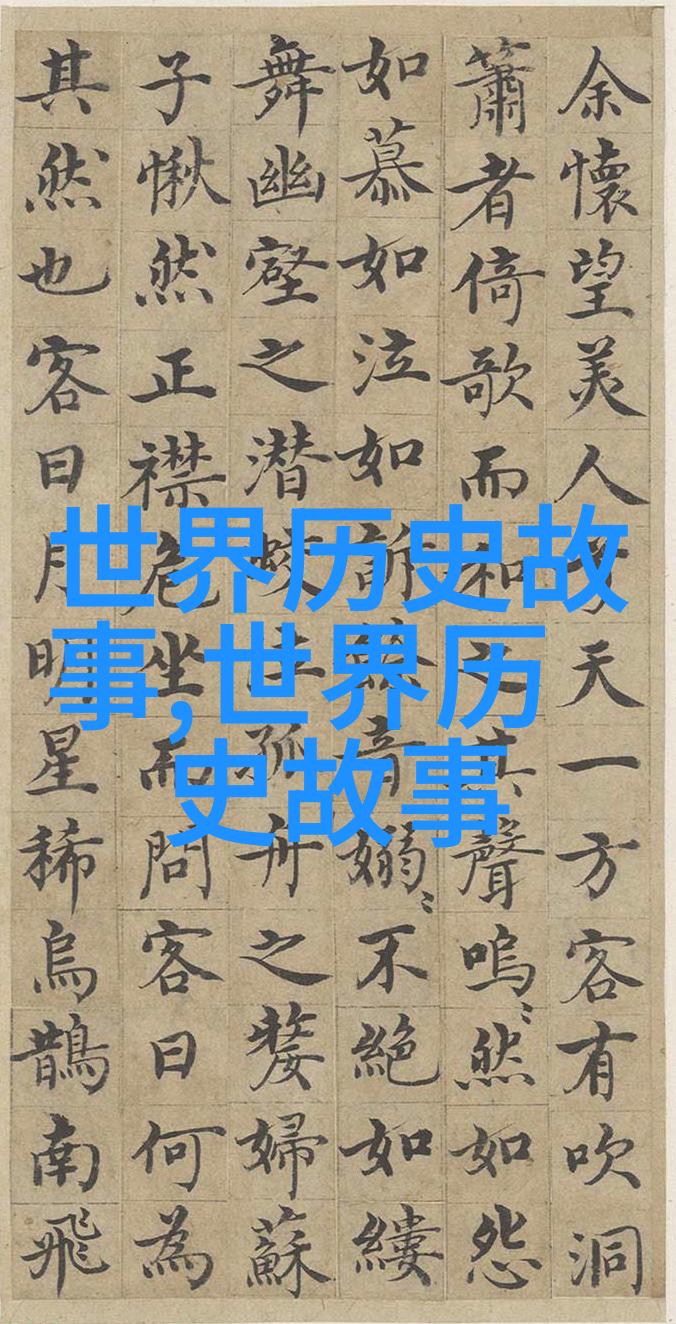 余懷望美人兮天一方客有吹洞
簫者倚歌而和之其聲嗚〻然如怨
如慕如泣如訴餘音嫋〻不絶如縷
舞幽壑之潜蛟泣孤舟之嫠婦蘇
子愀然正襟危坐而問客曰何為
其然也客曰月明星稀烏鵲南飛
世界历史故
事,世界历
史故事